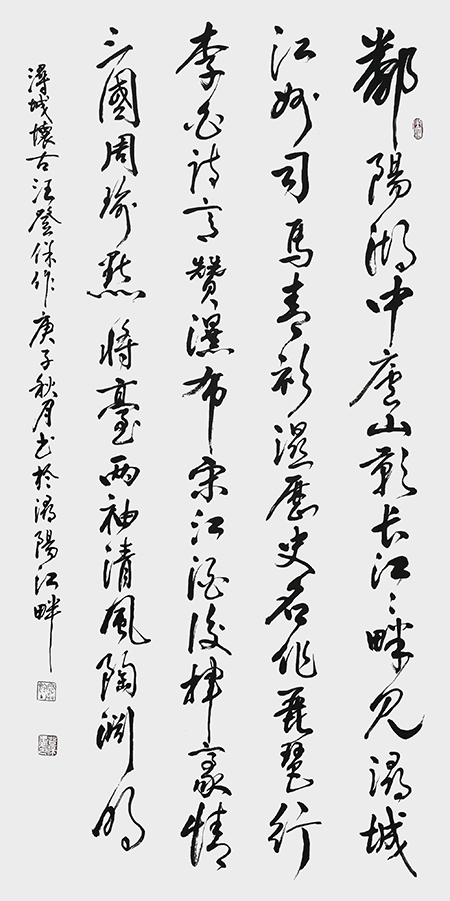 鄱陽湖中廬山影長江江畔見潯城
江州司馬青衫濕歷史名作琵琶行
李白詩言贊瀑布宋江酒後揮豪情
三國周瑜點將臺兩袖清風陶淵明
潯城懷古汪登保作庚子秋月書於潯陽江畔